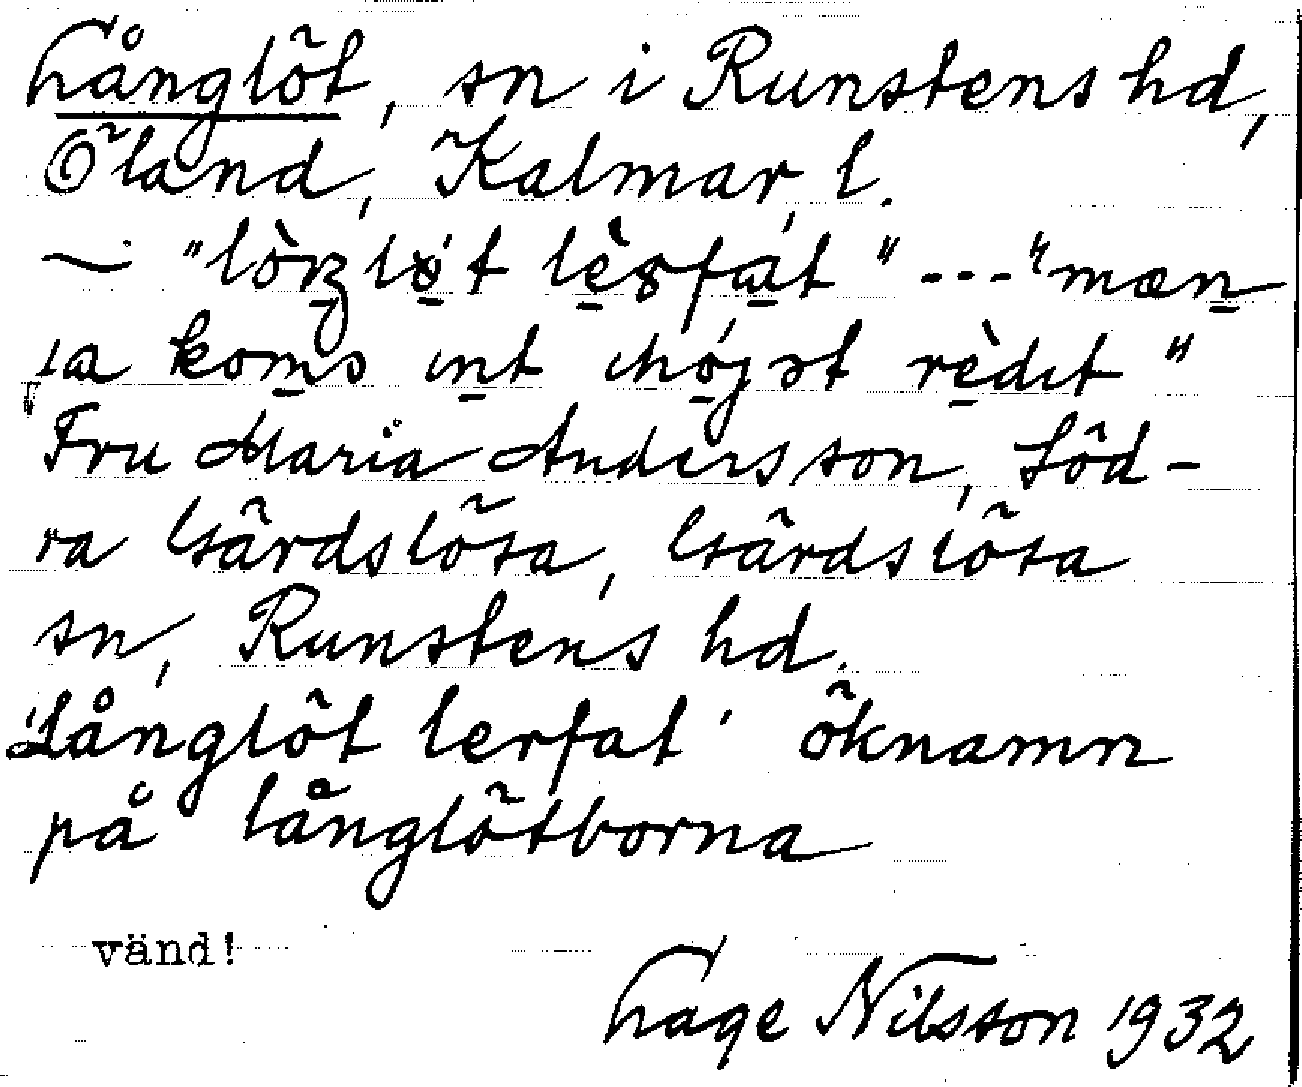 Långlöt, sn i Runstens hd,
Öland, Kalmar l.
~ "lòŋlö́t lèrfát" --- "mæn
ɪa koms ɪnt
rèdɪt"
Fru Maria Andersson, Söd-
ra Gärdslösa, Gärdslösa
sn, Runstens hd.
'Långlöt lerfat' öknamn
på långlötborna
vänd!
Lage Nilsson 1932